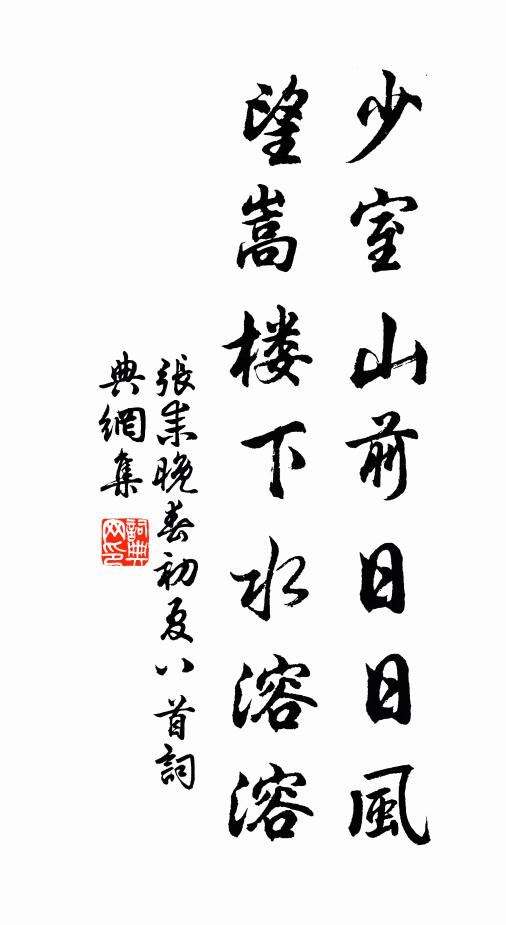 少室山前日日風
望嵩楼下水溶溶
張耒晚春初夏八首詞
典網集
詞典
网印